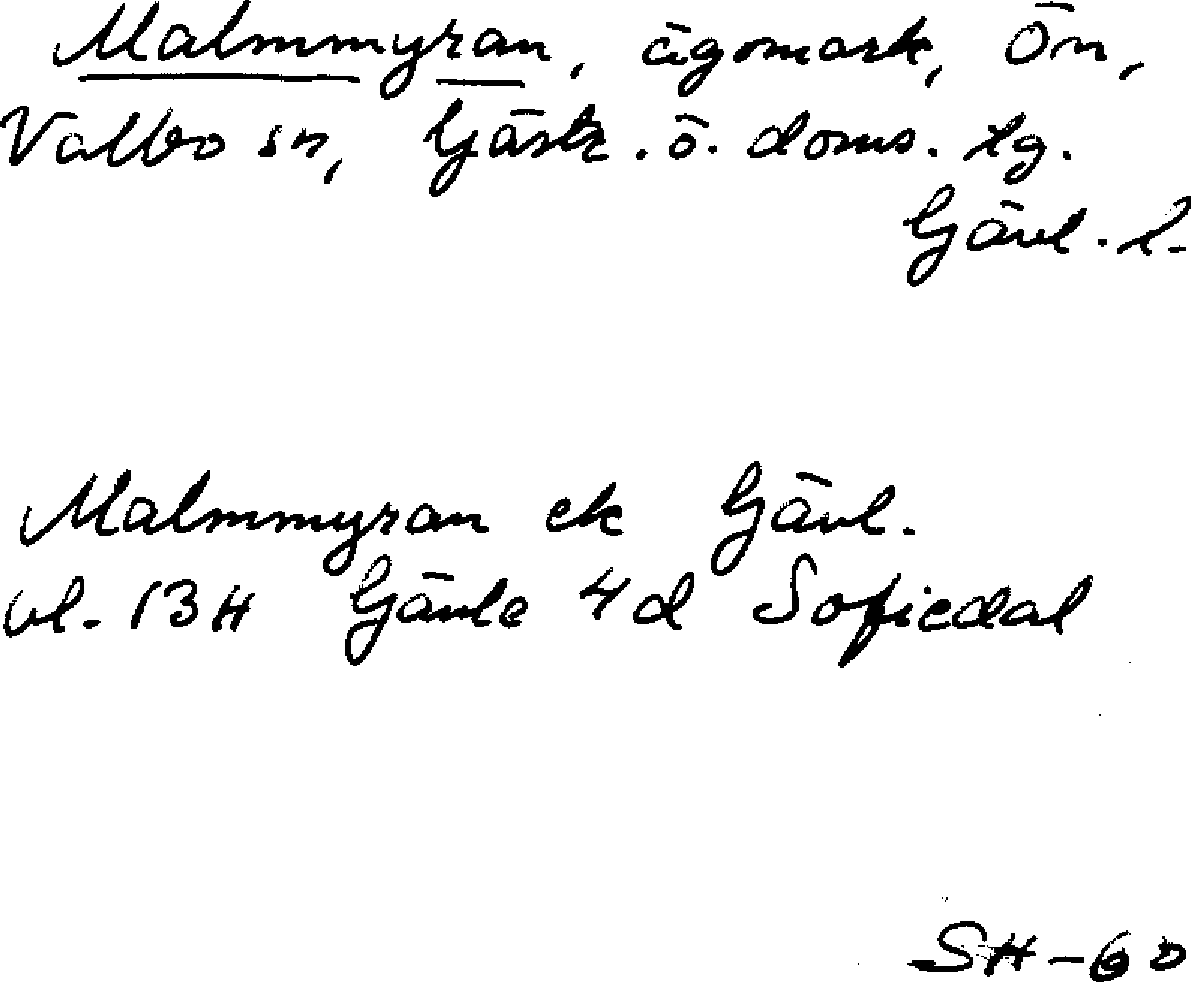 Malmmyran, ägomark, Ön,
Valbo sn, Gästr. ö. doms. lg.
Gävl. l.
Malmmyran ek Gävl.
vl. 13H Gävle 4d Sofiedal
SH-60